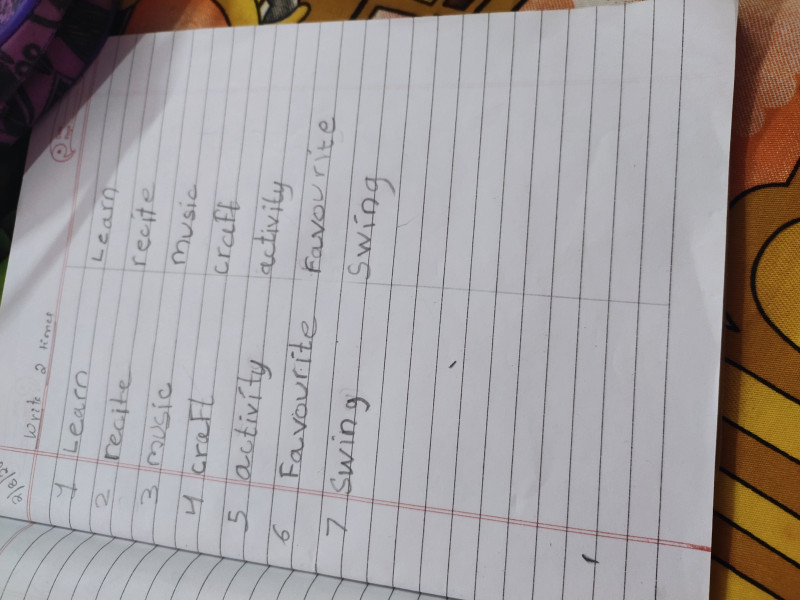 Write 2 times
1 Learn Learn
2 recite recite
3 music music
4 craft craft
5 activity activity
6 Favourite Favourite
7 Swing Swing